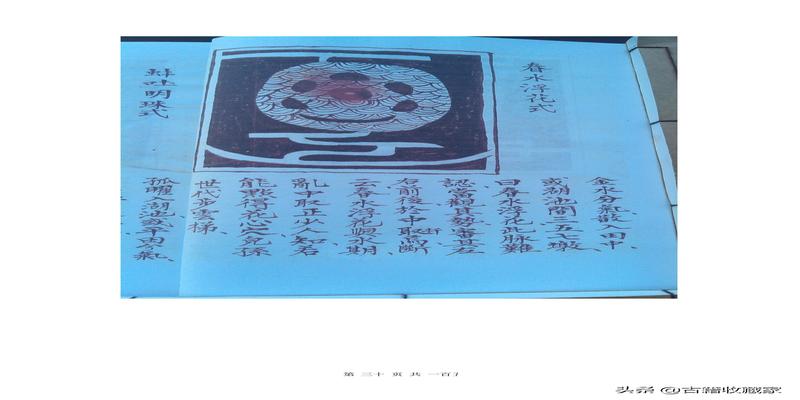 春水浮花式
金水分氣散入田中、
或湖池間三五七墩、
曰春水浮花此脉難
認當觀其勢審其左
右前後於中取爲斷
云春水浮花水期、
亂中取正少人知若
能點得花心穴兒孫
世代步雲梯、
蚌吐明珠式
孤入湖池或平氣、
第 三十 页 共 一百
头条 @古籍收藏家